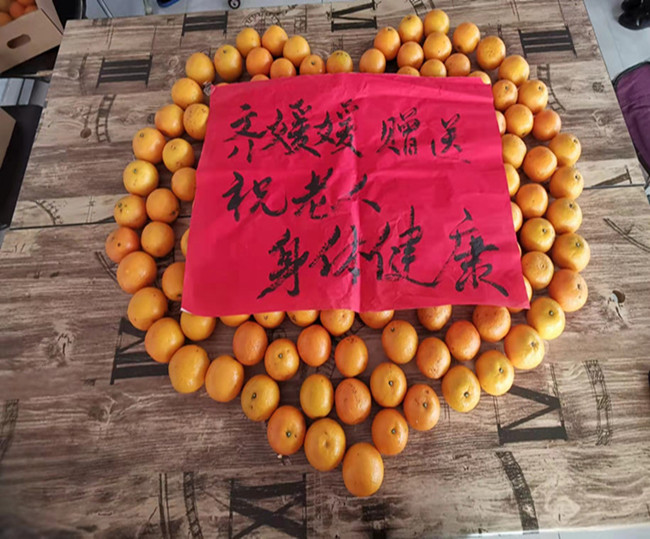 齐媛媛 赠送
祝老人
身体健康